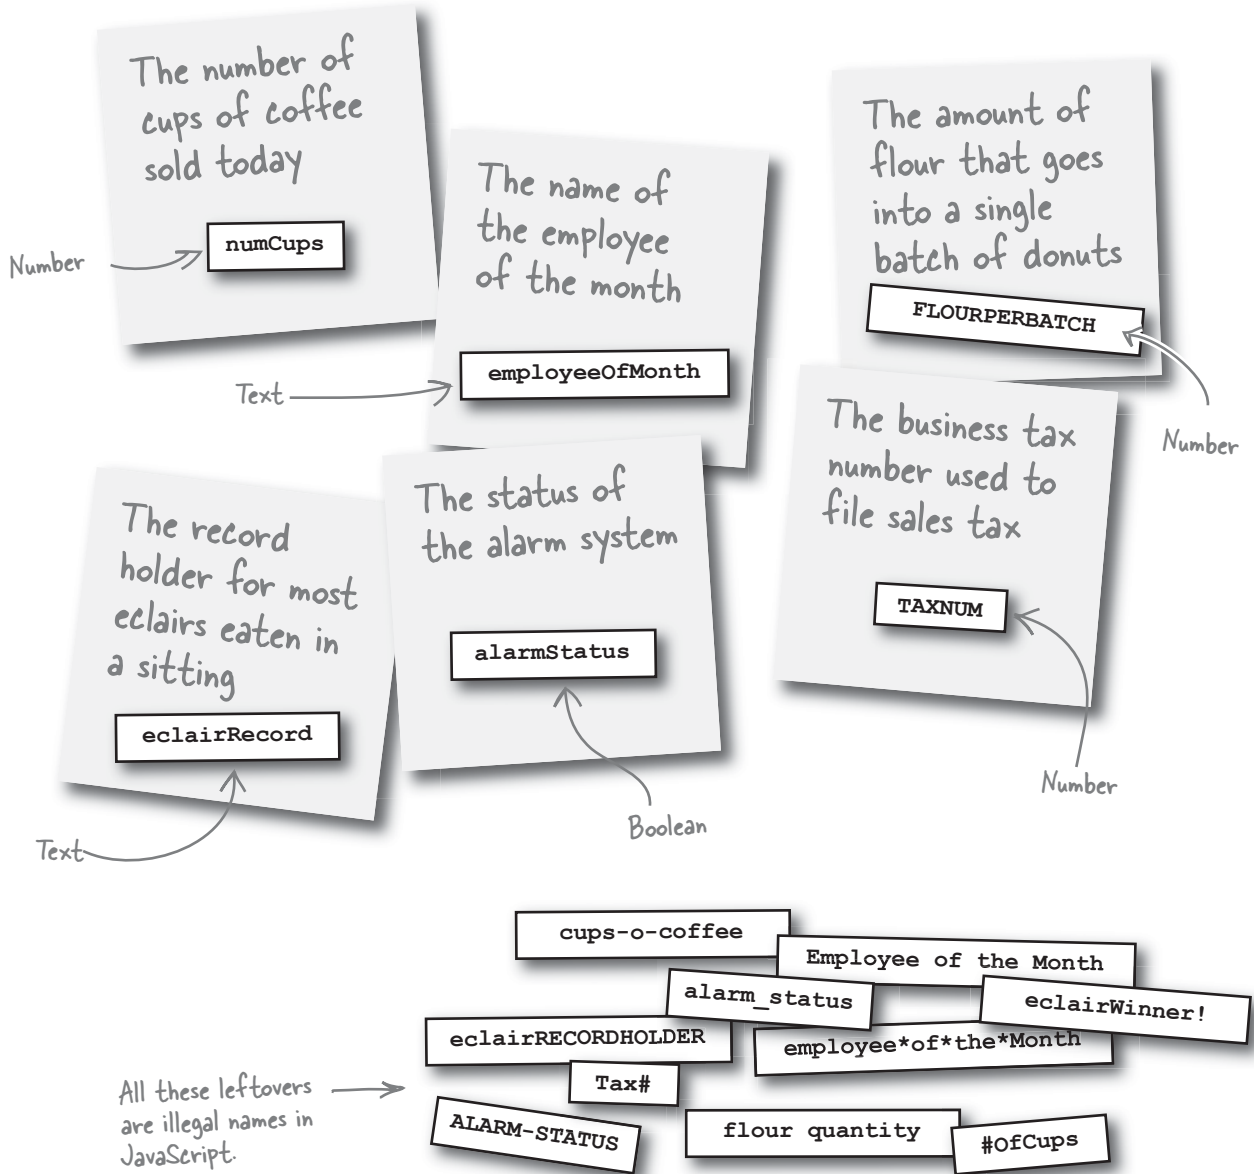 The number of
cups of coffee
sold today
numCups
Number
The name of
the employee
of the month
employeeOfMonth
Text
The amount of
flour that goes
into a single
batch of donuts
FLOURPERBATCH
Number
The record
holder for most
eclairs eaten in
a sitting
eclairRecord
Text
The status of
the alarm system
alarmStatus
Boolean
The business tax
number used to
file sales tax
TAXNUM
Number
cups-o-coffee
Employee of the Month
alarm_status
eclairWinner!
eclairRECORDHOLDER
employee*of*the*Month
Tax#
ALARM-STATUS
flour quantity
#OfCups
All these leftovers
are illegal names in
JavaScript.